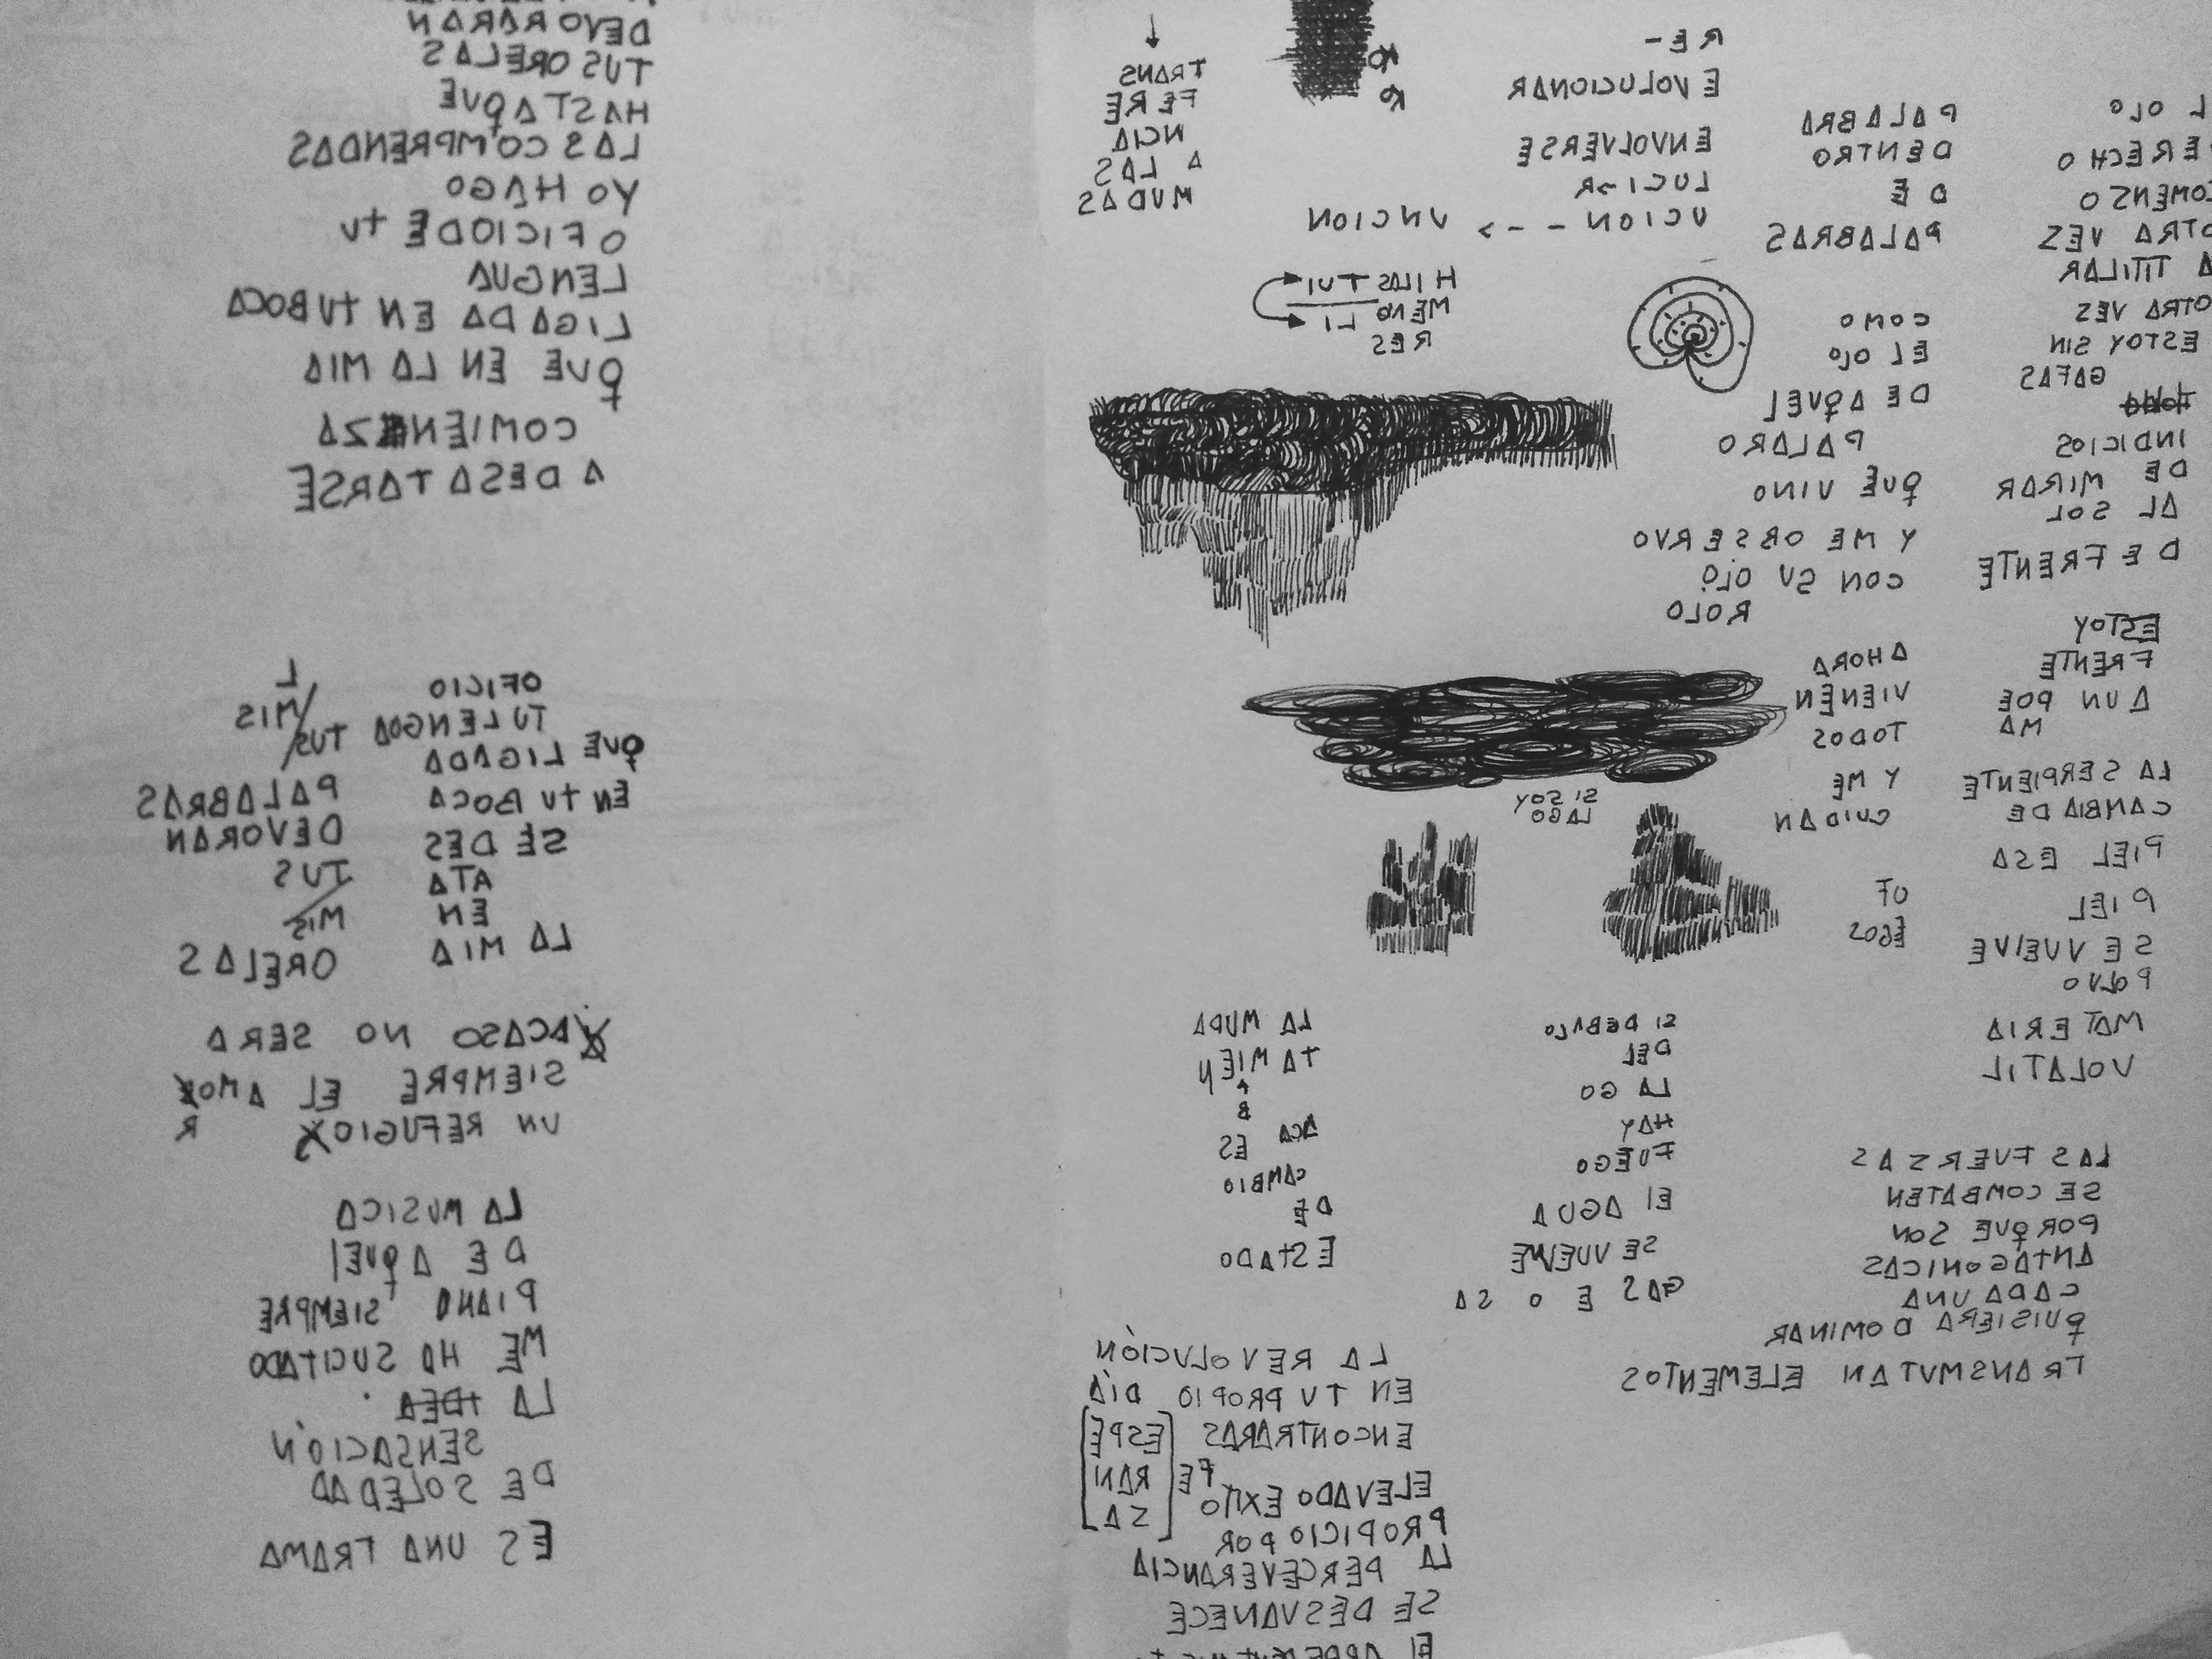 L OJO
DERECHO
COMENSO
OTRA VES
A TITILAR
OTRA VES
ESTOY SIN
GAFAS
INDICIOS
DE MIRAR
AL SOL
DE FRENTE
ESTOY
FRENTE
A UN POE
MA
LA SERPIENTE
CAMBIA DE
PIEL ESA
PIEL
SE VUELVE
POLVO
MATERIA
VOLATIL
LAS FUERSAS
SE COMBATEN
PORQUE SON
ANTAGONICAS
CADA UNA
QUISIERA DOMINAR
TRANSMUTAN ELEMENTOS
PALABRA
DENTRO
DE
PALABRAS
COMO
EL OJO
DE AQUEL
PAJARO
QUE VINO
Y ME OBSERVO
CON SU OJO
ROJO
AHORA
VIENEN
TODOS
Y ME
CUIDAN
UF
EGOS
RE-
EVOLUCIONAR
ENVOLVERSE
UCION --> UNCION
HILAS TUI
MENO LI
RES
SI SOY
LAGO
SI DEBAJO
DEL
LAGO
HAY
FUEGO
El AGUA
SE VUELVE
GASEOSA
TRANS
FERE
NCIA
A LAS
MUDAS
LA MUDA
TAMIEN
B
ACA ES
CAMBIO
DE
ESTADO
LA REVOLUCIÓN
EN TU PROPIO DÍA
ENCONTRARAS [ESPE
FE RAN
ELEVADO EXITO SA]
PROPICIO POR
LA PERCEVERANCIA
SE DESVANECE
DEVORARAN
TUS OREJAS
HASTA QUE
LAS COMPRENDAS
YO HAGO
OFICIO DE TU
LENGUA
LIGADA EN TU BOCA
QUE EN LA MIA
COMIENZA
A DESATARSE
OFICIO
TU LENGUA
QUE LIGADA
EN TU BOCA
SE DES
ATA
EN
LA MIA
L
TUS/MIS
PALABRAS
DEVORAN
TUS
MIS
OREJAS
ACASO NO SERA
SIEMPRE EL AMOR
UN REFUGIO
LA MUSICA
DE AQUEl
PIANO SIEMPRE
ME HA SUCITADO
LA IDEA
SENSACIÓN
DE SOLEDAD
ES UNA TRAMA